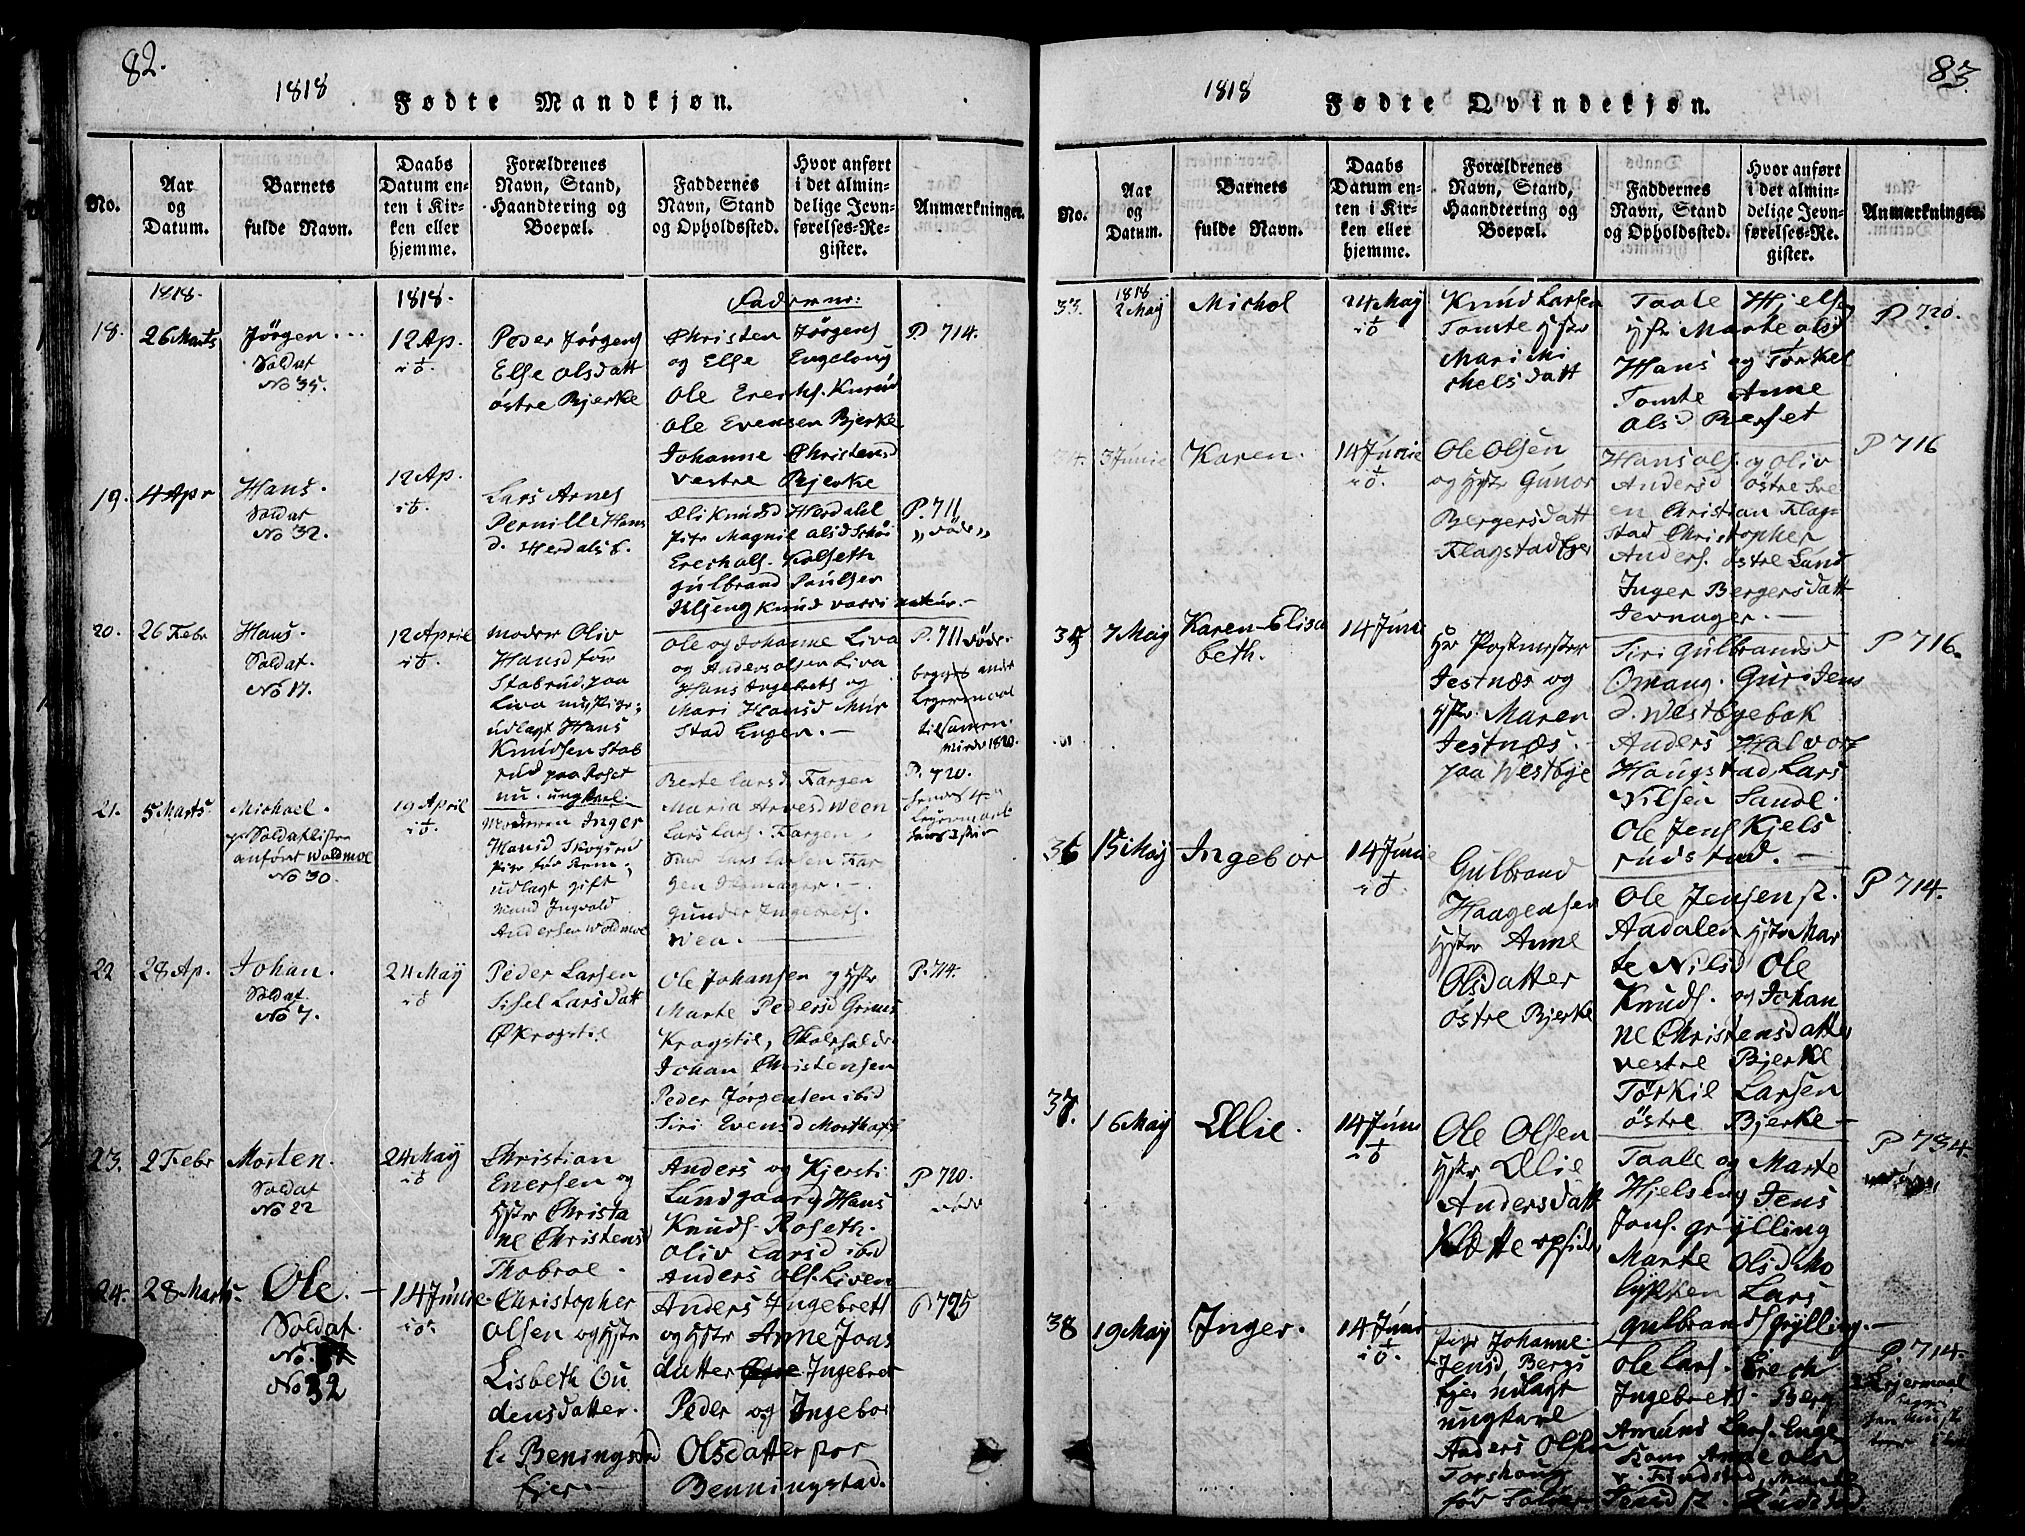 82.
1818
Fødte Mandkjøn.
No.
Aar
og
Datum.
Barnets
fulde Navn.
Daabs
Datum en-
ten i Kir-
ken eller
hjemme.
Forældrenes
Navn, Stand,
Haandtering og
Boepæl.
Faddernes
Navn, Stand
og Opholdssted.
Hvor anført
i det almin-
delige Jevn-
førelses-Re-
gister.
Anmærkninger.
1818.
1818.
Fadrene:
18.
26 Marts
Jørgen
Soldat
No 35.
12 Ap.
Peder Jørgens
Else Olsdatt
østre Bjerke
Christen Jørgens
og Else Engelong
Ole Erichs. Knud
Ole Evensen Bjerke
Johanne Christensd
vestre Bjerke
P. 714.
19.
4 Apr
Hans.
Soldat
No 32.
12 Ap.
Lars Arnes
Pernille Hans
d. Herdals E.
Eli Knudsd Herdahl
Erichols. Kolseth
Gulbrand Poulsen
P. 711
„Døde„
20.
26 Febr
Hans.
Soldat.
No 17.
12 April
Moder Oliv
Hansd før
Stabrud, paa
Liva nu, Pige;
udlagt Hans
Knudsen Stab
rud paa Roset
nu. ungkarl.
Ole og Johanne Liva
og Anders Olsen Liva
Hans Ingebreth og
Mari Hansd Mur
Stad Engen.
P. 711 Døde.
begges andet
Legermaal
tilsamen.
21.
5 Marts
Michael.
Soldatlisten
anført Woldmoe
No 30.
19 April
Moderen Inger
Hansd Skogsrud
udlagt gift
Mand Ingvald
Andersen Woldmoe
Berte Larsd. Fargen
Maria Arnesd Ween
Lars Lars. Fargen,
Lars Larsen Far-
gen
Gunder Ingebreths.
Wen.
P. 720.
22
28 Ap.
Johan.
Soldat.
No 7.
24 May
Peder Larsen
Sisel Larsdatt
Ole Johansen og Hstr
Marte Pedersd Grims
Kragstie,
Johan Christensen
Peder Jørgensen ibid
Siri Evensd
P. 714.
23.
2 Febr
Morten.
Soldat
No 22
24 May
Christian
Enersen og
Hstr Christa
ne Christensd
Thobroe.
Anders og Kjersti
Lundgaard, Hans
Knuds. Roseth.
Oliv Larsd ibid
Anders Ols. Liven
P 720.
24.
28 Marts.
Ole.
Soldat.
No 32
14 Junie
Christopher
Olsen og Hstr
Lisbeth Gu
densdatter.
Beningstad
Eier.
Anders Ingebrett
og Hstr Anne Jons
datter Ingebret
Peder og Ingebor
Olsdatter for
Benningstad.
P 725
83.
1818
Fødte Qvindekjøn.
No.
Aar
og
Datum.
Barnets
fulde Navn.
Daabs
Datum en-
ten i Kir-
ken eller
hjemme.
Forældrenes
Navn, Stand,
Haandtering og
Boepæl.
Faddernes
Navn, Stand
og Opholdssted.
Hvor anført
i det almin-
delige Jevn-
førelses-Re-
gister.
Anmærkninger.
33.
1818
2 May
Michol
24 May
Knud Larsen
Tomte Hstr
Mari Mi
chelsdatt
Taale Hjelseng
Hstr Marte Olsd
Hans og Torkel
Tomte Anne
Olsd Berset
P 720.
34.
3 Junie
Karen.
14 Junie
Ole Olsen
og Hstr Gunor
Bergersdatt
Flagstad Eier
Hans Ols. og Oliv
Andersd østre Sve
en Christian Flag-
stad Christopher
Anders. østre Lund
Inger Bergersdatt
Jevnager.
P 716
35
7 May
Karen-Elisa
beth.
14 Juni
Hr Postmester
Jestnæs og
Hstr. Maren
Jestnæs.
paa Westbye
Siri Gulbrandsd
Omang. Guri Jens
d. Westbyebak
Anders Halvors
Haugstad, Lars
Nilsen Sandl.
Ole Jens Kjels
rudstad.
P 716.
36
15 May
Ingebor
14 Junie
Gulbrand
Haagensen
Hstr Anne
Olsdatter
østre Bjerke
Ole Jensen
Aadalen Hstr Mar
te Nilsd Ole
Knuds. og Johan
ne Christensdatter
vestre Bjerke
Torkil Larsen
østre Bjerke
P 714.
37.
16 May
Ellie.
14 Juni
Ole Olsen
Hstr Ellie
Andersdatt
Taale og Marte
Hjelseng Jens
Jons. Grylling
Marte Olsd Mo
lykken Lars
Gulbrands Grylling.
P 734.
38
19 May
Inger.
14 Juni
Pige Johanne
Jensd Bergs
Eier udlagt
ungkarl
Anders Olsen
Torshoug
Ole Lars. Erich
Ingebrets. Berg
Amund Lars. Enge
P. 714.
Lejermaal